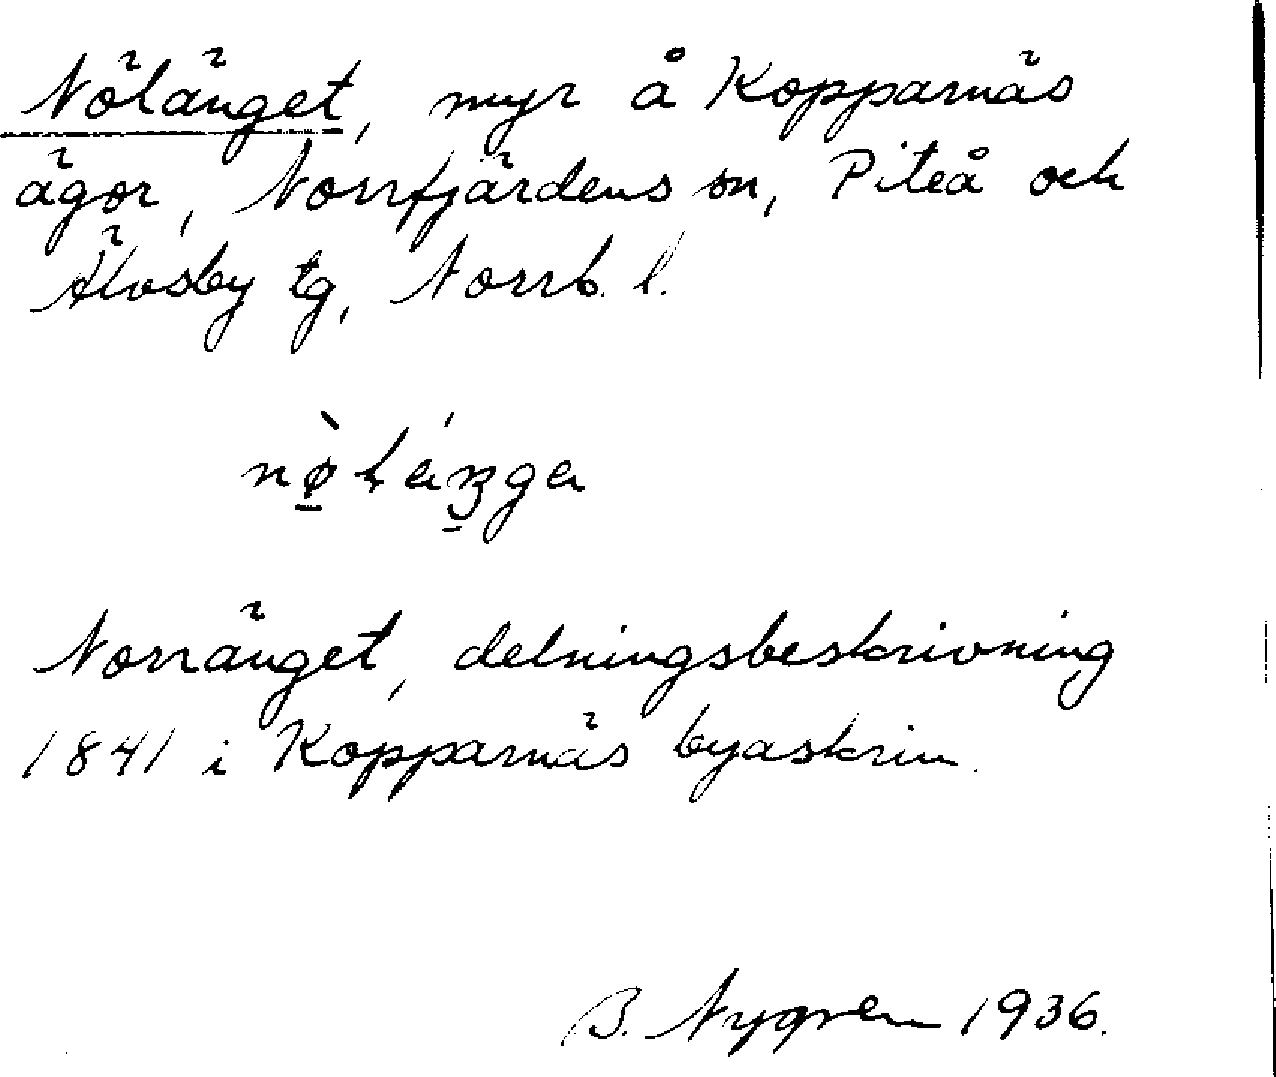 Nöłänget, myr å Kopparnäs
ägor, Norrfjärdens sn, Piteå och
Älvsby tg, Norrb. l.
Norränget, delningsbeskrivning
1841 i Kopparnäs byaskrin.
B. Nygren 1936.